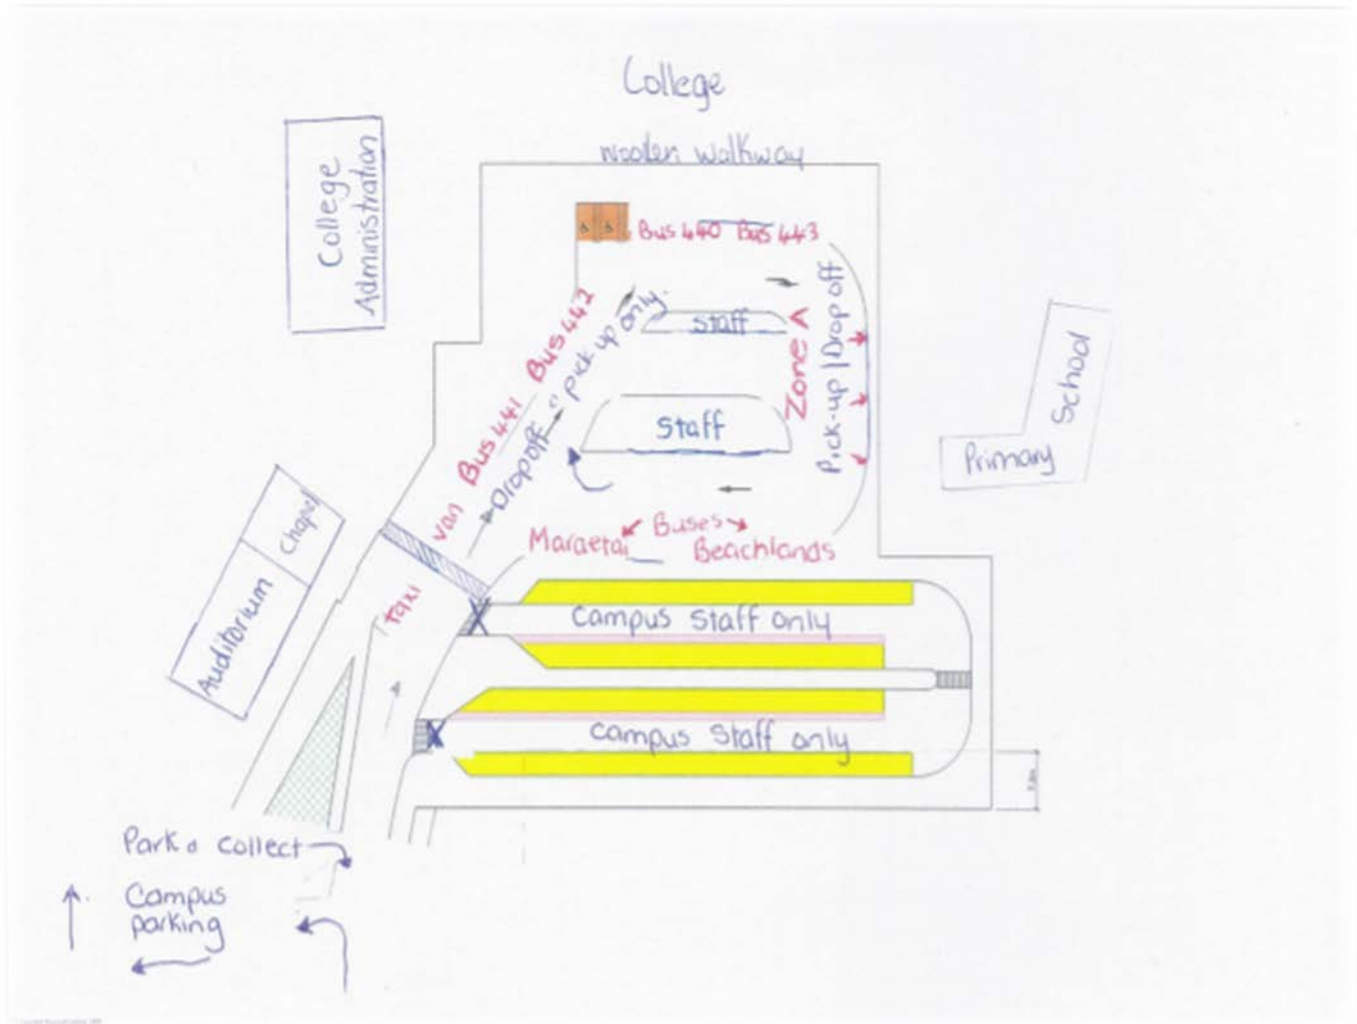 College
wooden walkway
College
Administration
Bus 440 Bus 443
Bus 442
Bus 441
van
Taxi
Drop off
pick up only.
Staff
Zone A
Pick-up / Drop off
Staff
Primary
School
Chapel
Auditorium
Buses
Maraetai
Beachlands
Campus Staff only
Campus Staff only
Park & Collect
Campus
parking